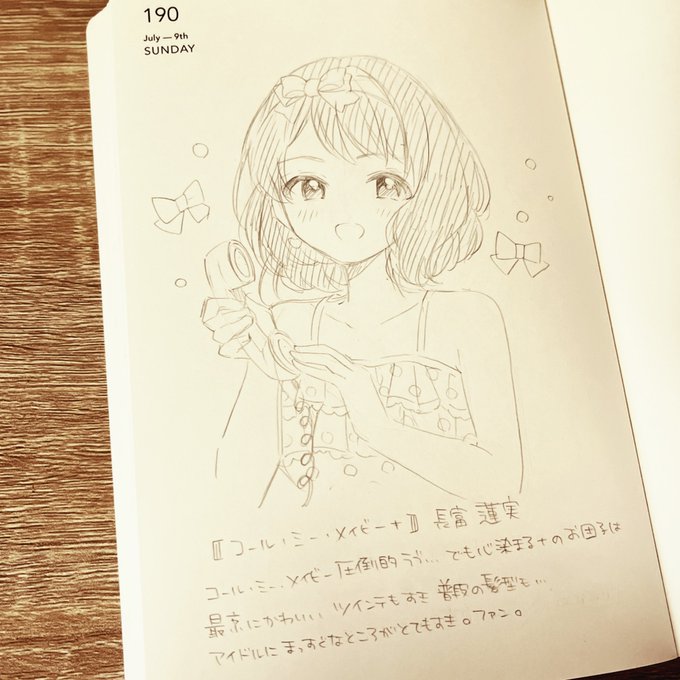 190
July — 9th
SUNDAY
〚コール・ミー・メイビー+〛 長富 蓮実
コール・ミー・メイビー圧倒的ラブ… でも心染まる+のお団子は
最高にかわいい ツインテもすき 普段の髪型も…
アイドルにまっすぐなところがとてもすき。ファン。